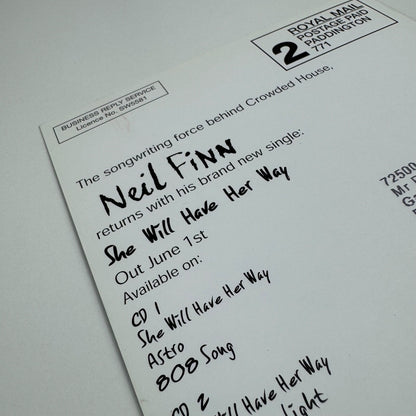 ROYAL MAIL
POSTAGE PAID
PADDINGTON
771
2
BUSINESS REPLY SERVICE
Licence No. SW5581
The songwriting force behind Crowded House,
Neil FiNN
returns with his brand new single:
She Will Have Her Way
Out June 1st
Available on:
CD 1
She Will Have Her Way
Astro
808 Song
CD 2
Will Have Her Way
72500
Mr